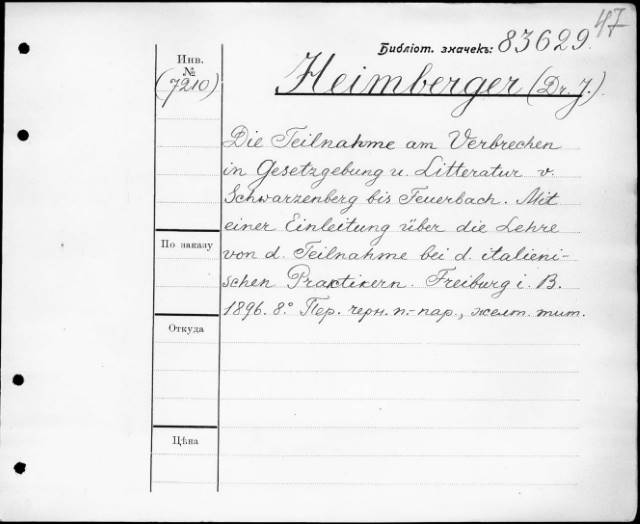 47
Библіот. значекъ: 83629.
Инв.
№
(7210)
Heimberger (Dr. J.).
Die Teilnahme am Verbrechen
in Gesetzgebung u. Litteratur v.
Schwarzenberg bis Feuerbach. Mit
einer Einleitung über die Lehre
von d. Teilnahme bei d. italieni-
schen Praktikern. Freiburg i. B.
1896. 8.° Пер. черн. п.-пар., желт. тит.
По заказу
Откуда
Цѣна